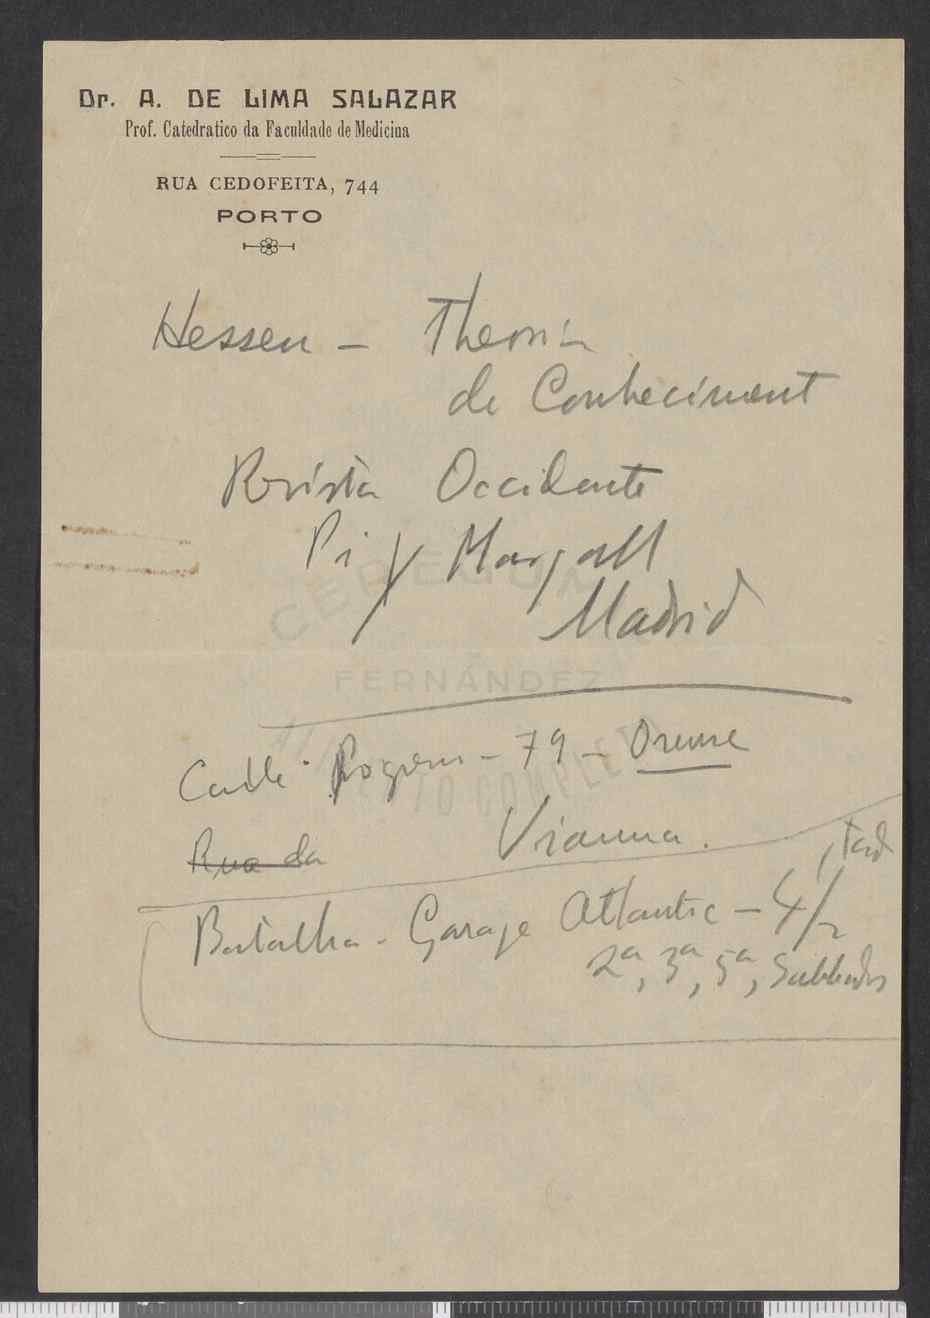 Dr. A. DE LIMA SALAZAR
Prof. Catedratico da Faculdade de Medicina
RUA CEDOFEITA, 744
PORTO
Hessen - Theoria
de Conheciment
Revista Occidente
Pi y Margall
Madrid
FERNÁNDEZ
Calle Progreso - 79 - Orense
Rua da Vianna.
Batalha - Garage Atlantic - 4/2 , Tard
2ª, 3ª, 5ª, Sabbados